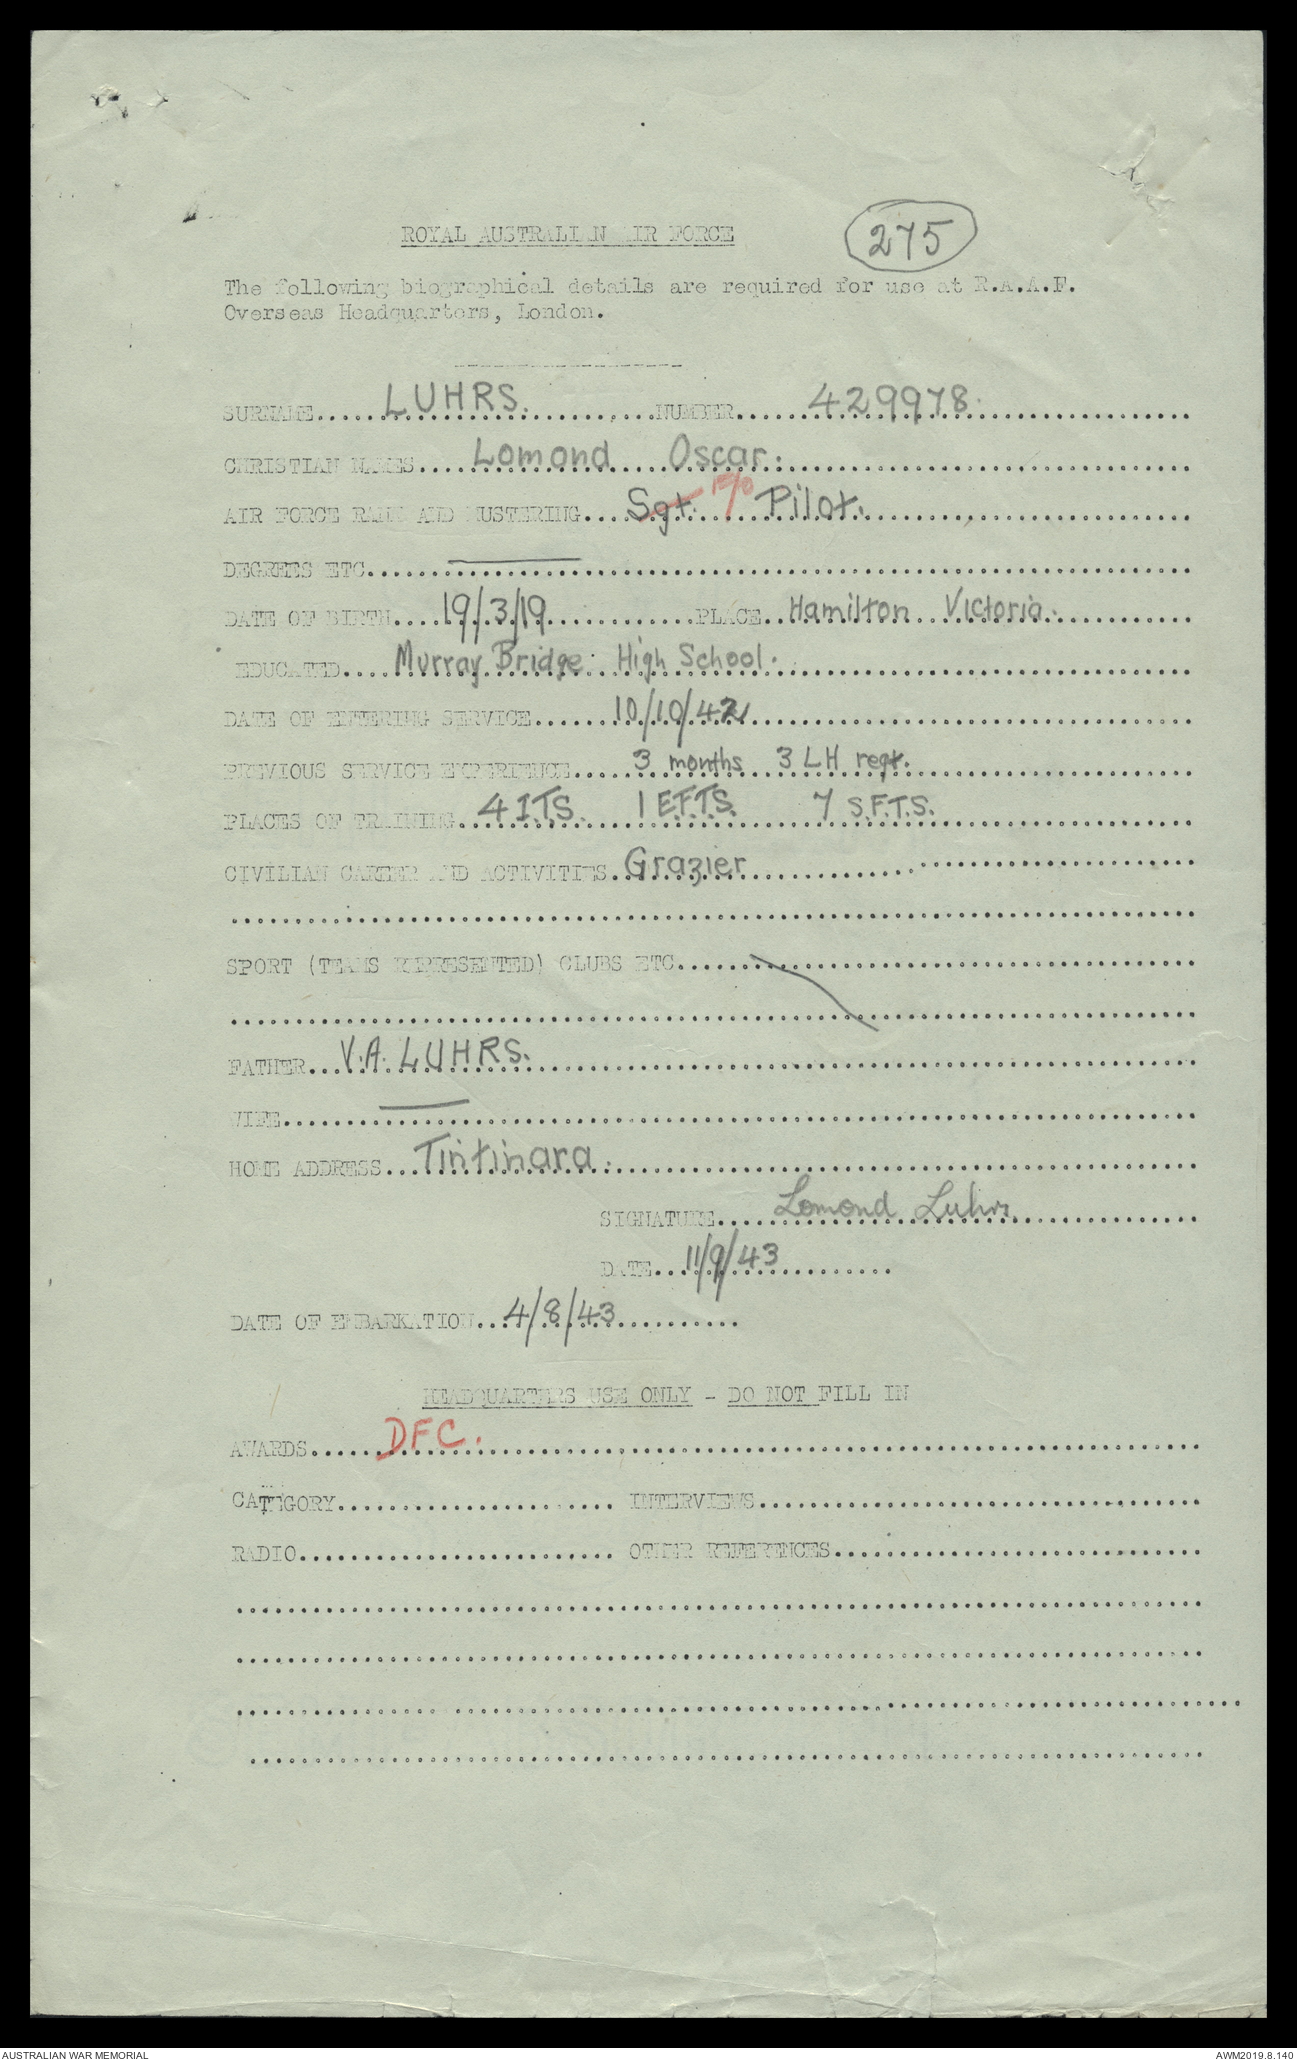 ROYAL AUSTRALIAN AIR FORCE 275
The following biographical details are required for use at R.A.A.F.
Overseas Headquarters, London.
SURNAME.....LUHRS.....NUMBER.....429978.....
CHRISTIAN NAMES.....Lomond Oscar.....
AIR FORCE RANK AND MUSTERING.....Sgt. P/O Pilot.....
DEGREES ETC.....
DATE OF BIRTH.....19/3/19.....PLACE..Hamilton Victoria.....
EDUCATED.....Murray Bridge High School.....
DATE OF ENTERING SERVICE.....10/10/42.....
PREVIOUS SERVICE EXPERIENCE.....3 months 3 LH regt.....
PLACES OF TRAINING.....4 I.T.S. 1 E.F.T.S. 7 S.F.T.S.....
CIVILIAN CAREER AND ACTIVITIES.Grazier.....
SPORT (TEAMS REPRESENTED) CLUBS ETC.....
FATHER...V.A. LUHRS.....
WIFE.....
HOME ADDRESS...Tintinara.....
SIGNATURE.....Lomond Luhrs.....
DATE...11/9/43.....
DATE OF EMBARKATION...4/8/43.....
HEADQUARTERS USE ONLY - DO NOT FILL IN
AWARDS.....DFC.....
CATEGORY..... INTERVIEWS.....
RADIO..... OTHER REFERENCES.....
AUSTRALIAN WAR MEMORIAL AWM2019.8.140